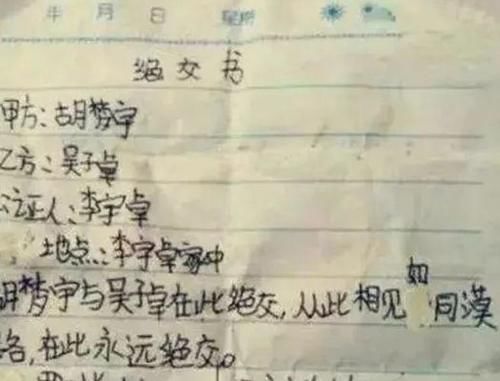 年 月 日 星期
绝交书
甲方:胡梦宇
乙方:吴子卓
公证人:李宇卓
地点:李宇卓家中
胡梦宇与吴子卓在此绝交,从此相见如同漠
路,在此永远绝交。